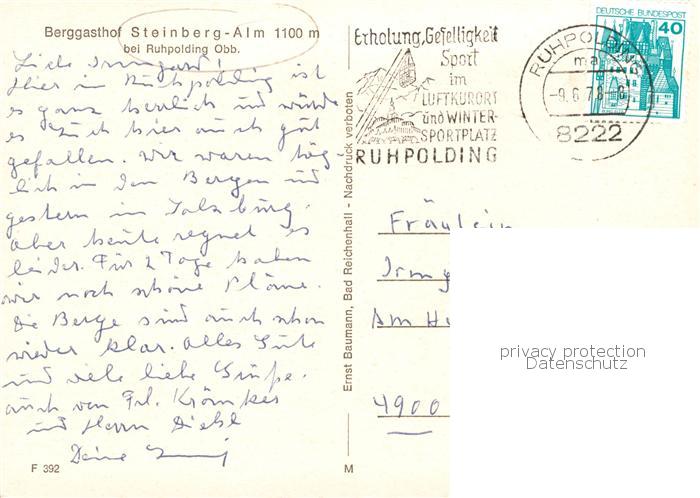 Berggasthof Steinberg-Alm 1100 m
bei Ruhpolding Obb.
Liebe Irmgard!
Hier in Ruhpolding ist
es ganz herrlich und würde
es Euch hier auch gut
gefallen. Wir waren täg-
lich in den Bergen und
gestern in Salzburg.
Aber heute regnet es
leider. Für 2 Tage haben
wir noch schöne Pläne.
Die Berge sind auch schon
wieder klar. Alles Gute
und viele liebe Grüße.
auch von Frl. Krömker
und Herrn Diehl
Deine
F 392
Ernst Baumann, Bad Reichenhall - Nachdruck verboten
M
Erholung, Geselligkeit
Sport
im
LUFTKURORT
und WINTER-
SPORTPLATZ
RUHPOLDING
RUHPOLDING
ma
-9.6.78-8
8222
DEUTSCHE BUNDESPOST
40
Fräulein
Irmg
Am H
4900
privacy protection
Datenschutz